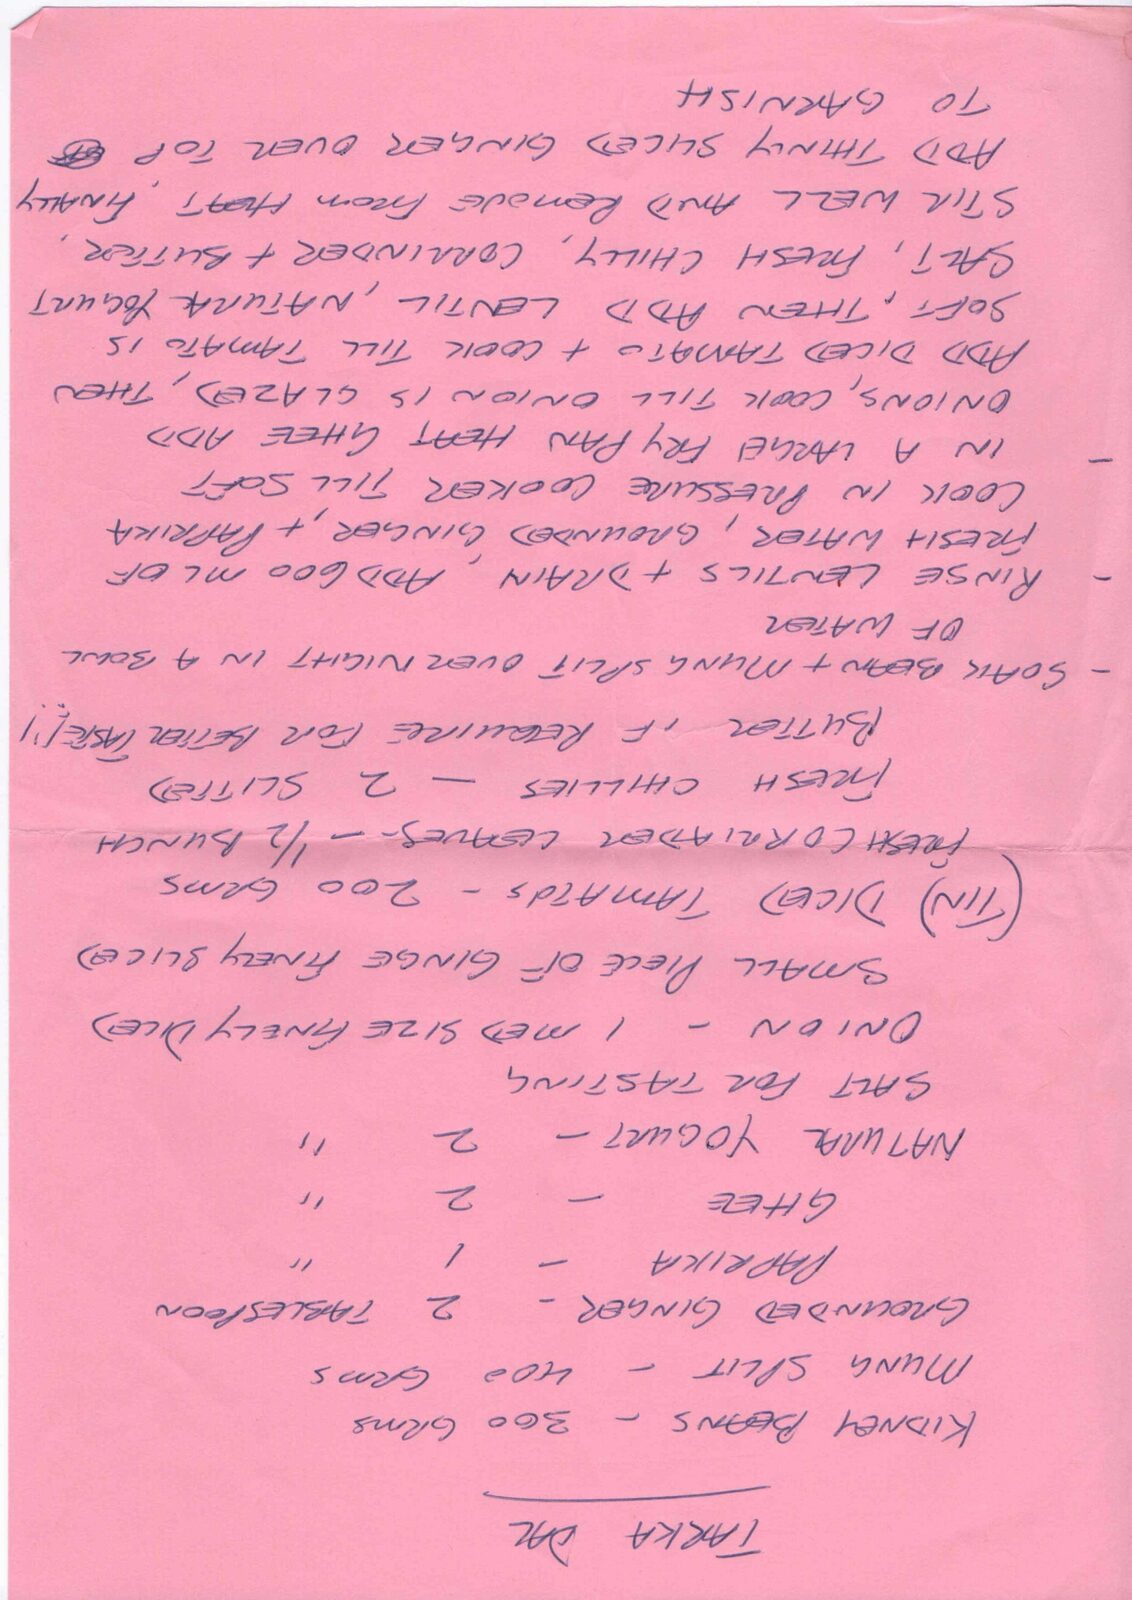 TARKA DAL
KIDNEY BEANS - 300 GRMS
MUNG SPLIT - 400 GRMS
GROUNDED GINGER - 2 TABLESPOON
PAPRIKA - 1 "
GHEE - 2 "
NATURAL YOGURT - 2 "
SALT FOR TASTING
ONION - 1 MED SIZE FINELY DICED
SMALL PIECE OF GINGE FINELY SLICED
(TIN) DICED TAMATOS - 200 GRMS
FRESH CORRIADER LEAVES - 1/2 BUNCH
FRESH CHILLIES - 2 SLITTED
BUTTER IF REQUIRE FOR BETTER TASTE!!
- SOAK BEAN + MUNG SPLIT OVER NIGHT IN A BOWL
OF WATER
- RINSE LENTILS + DRAIN, ADD 600 ML OF
FRESH WATER, GROUNDED GINGER, + PAPRIKA
COOK IN PRESSURE COOKER TILL SOFT
- IN A LARGE FRY PAN HEAT GHEE ADD
ONIONS, COOK TILL ONION IS GLAZED, THEN
ADD DICED TAMATO + COOK TILL TAMATO IS
SOFT, THEN ADD LENTIL, NATURAL YOGURT
SALT, FRESH CHILLY, CORRINDER + BUTTER,
STIR WELL AND REMOVE FROM HEAT, FINALLY
ADD THINLY SLICED GINGER OVER TOP
TO GARNISH